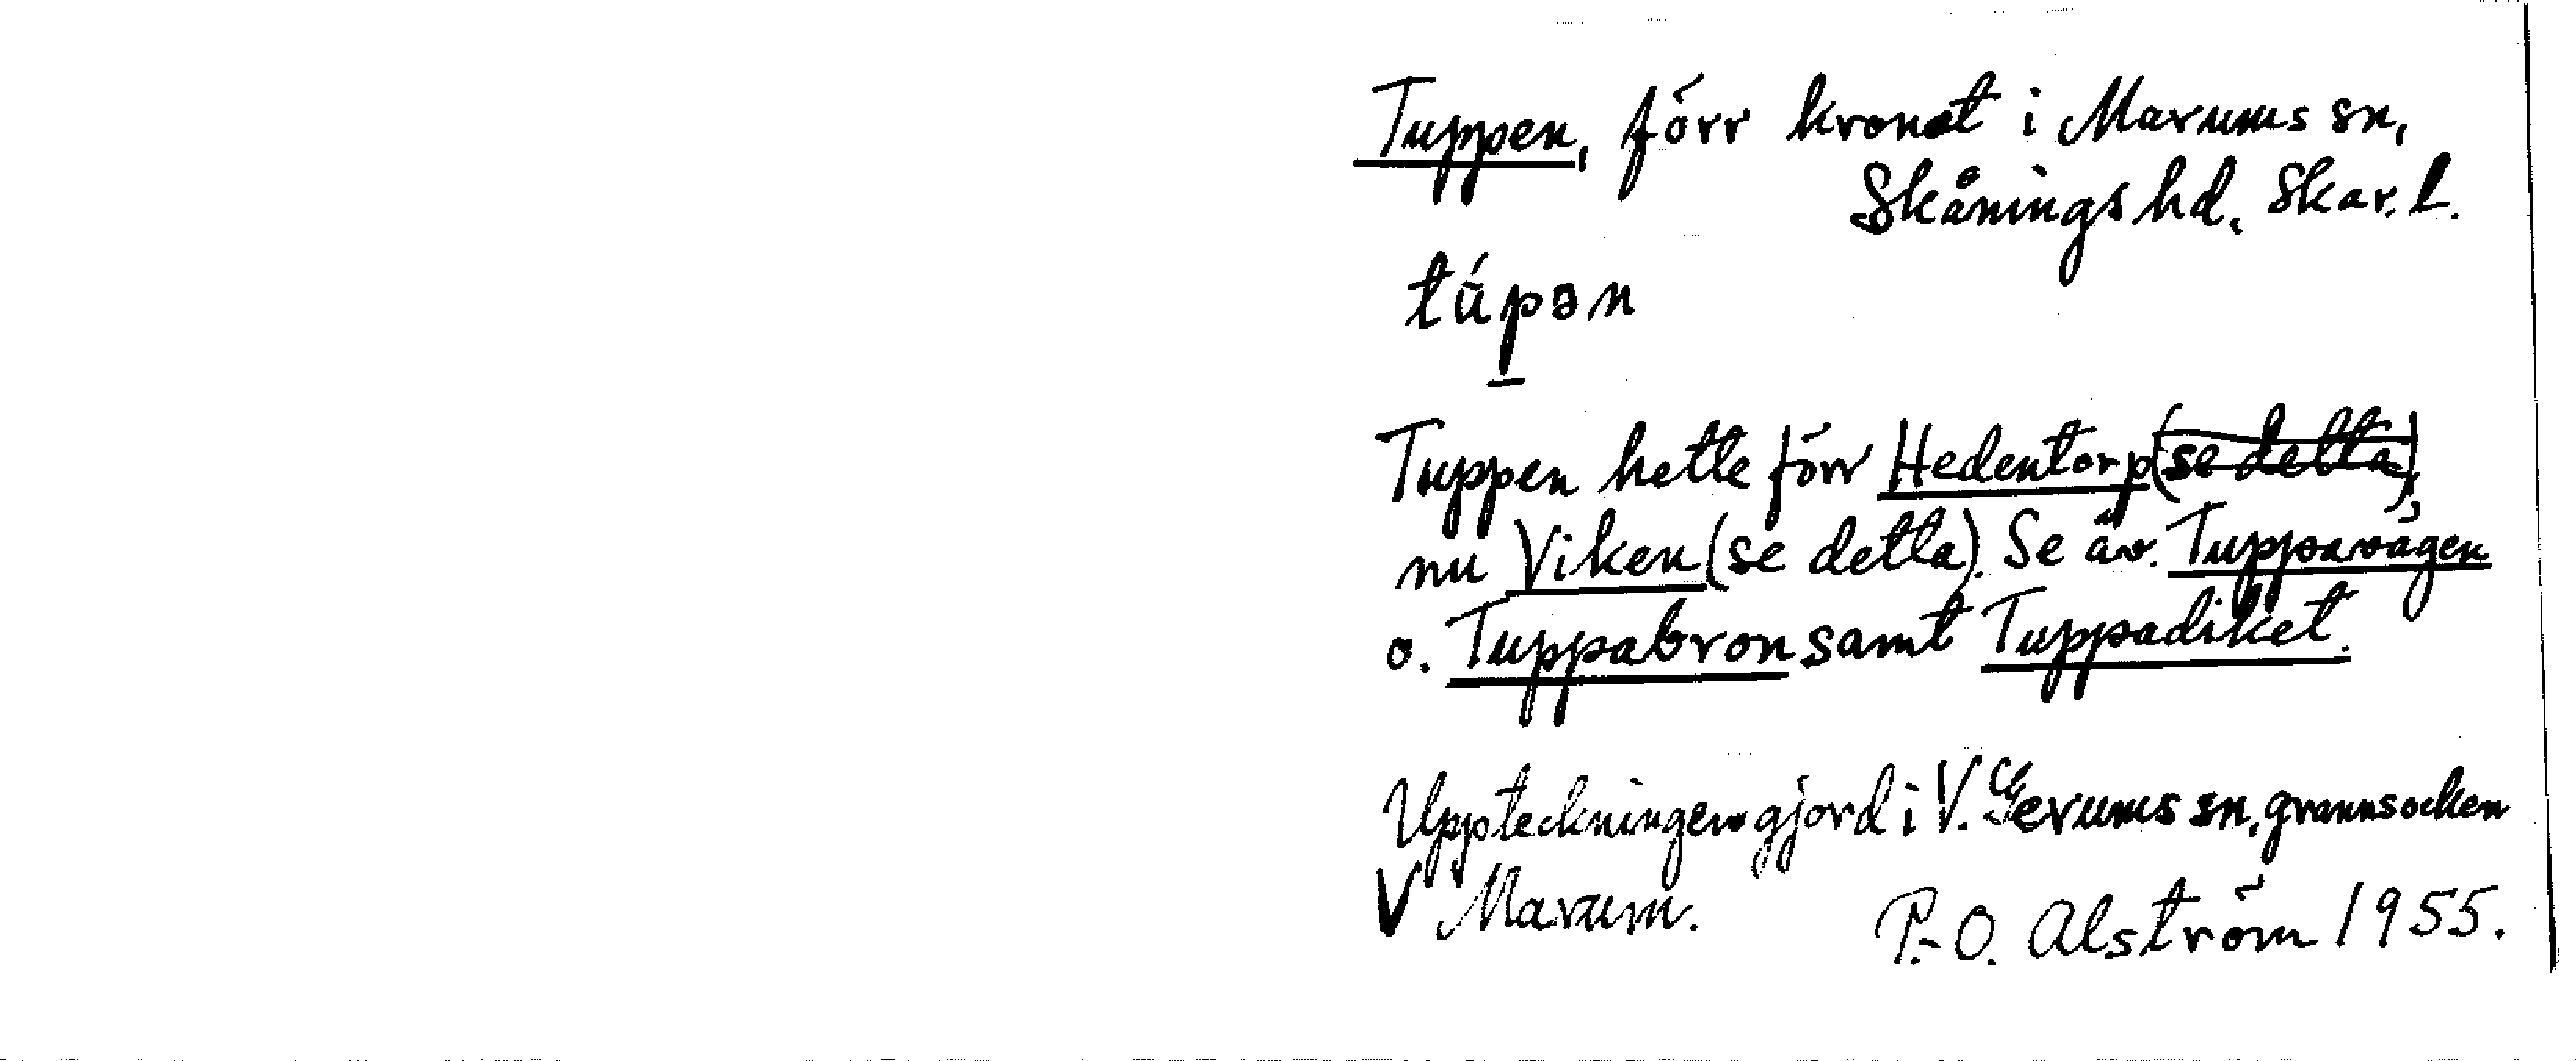 Tuppen, förr kronot i Marums sn,
Skånings hd. Skar. l.
túpən
Tuppen hette förr Hedentorp (se detta),
nu Viken (se detta). Se äv. Tuppavägen
o. Tuppabron samt Tuppadiket.
Uppteckningen gjord i V. Gerums sn, grannsocken
V Marum.
P.-O. Alström 1955.